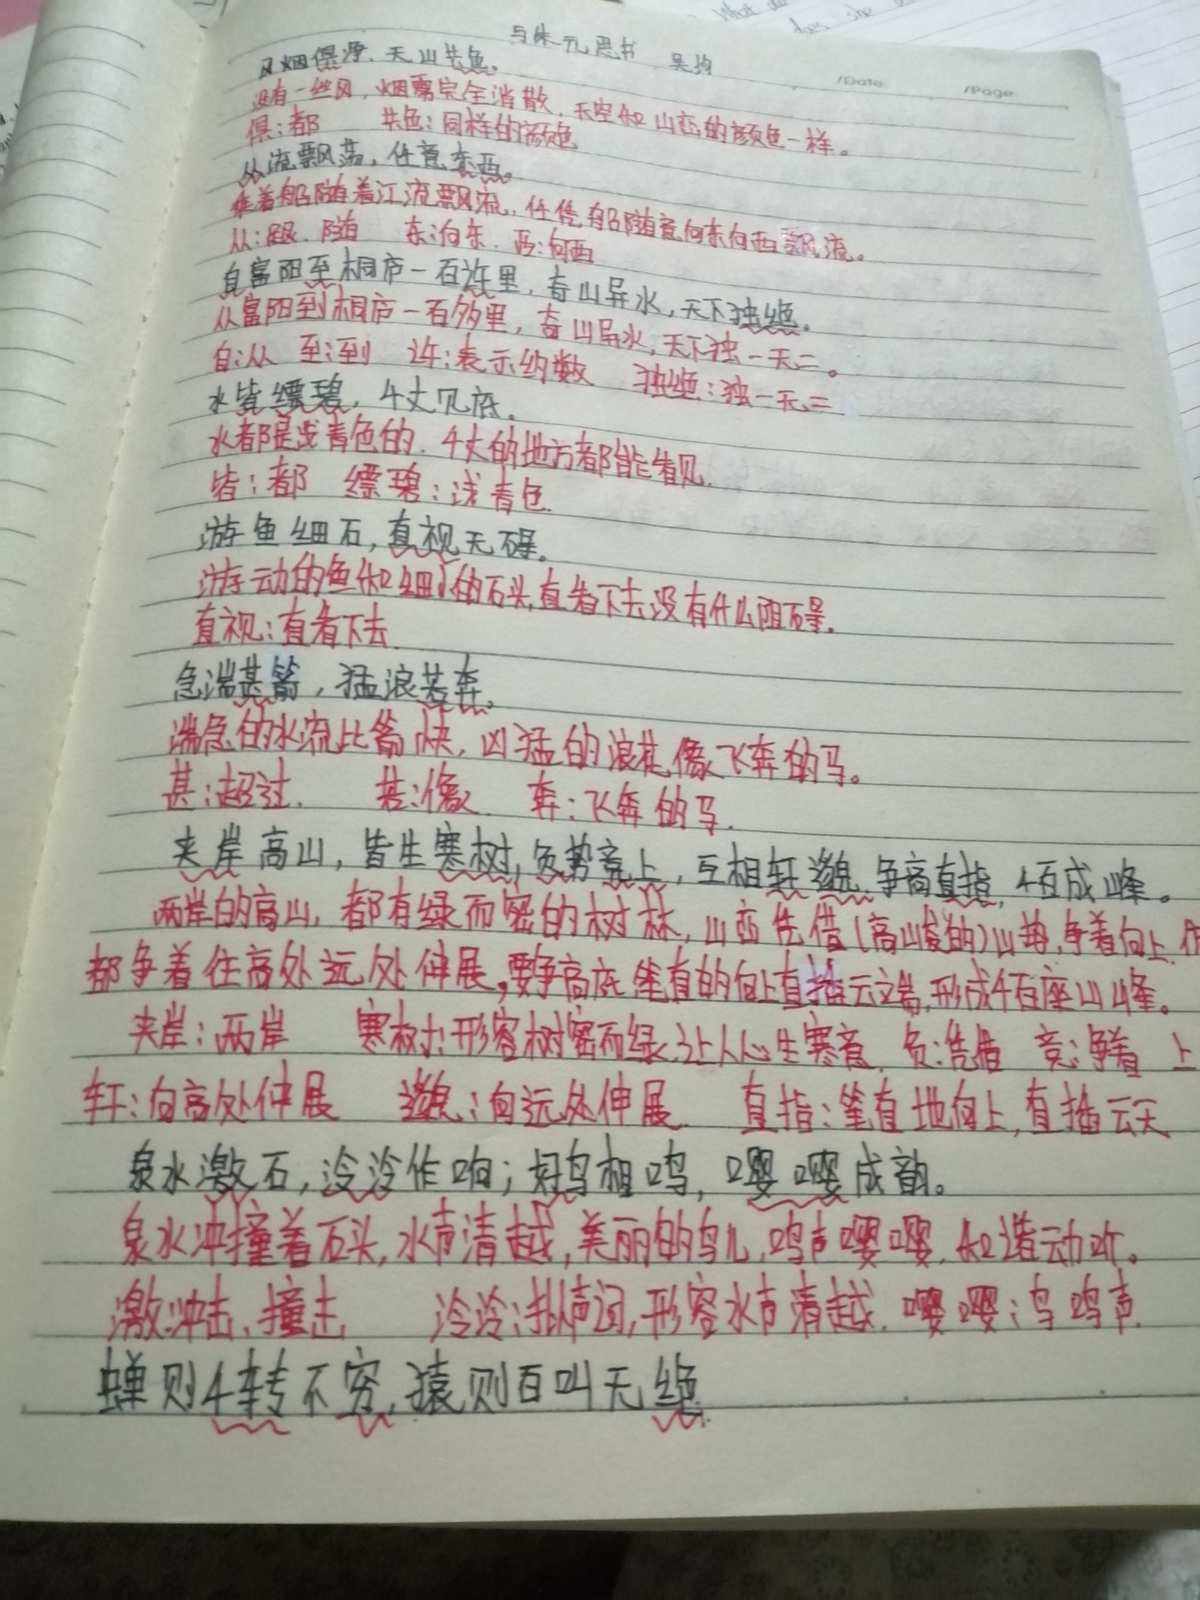 与朱元思书 吴均
/Date /Page
风烟俱净，天山共色。
没有一丝风，烟雾完全消散，天空和山峦的颜色一样。
俱：都 共色：同样的颜色
从流飘荡，任意东西。
乘着船随着江流飘流，任凭船随意向东向西飘流。
从：跟、随 东：向东、西：向西
自富阳至桐庐一百许里，奇山异水，天下独绝。
从富阳到桐庐一百多里，奇山异水，天下独一无二。
自：从 至：到 许：表示约数 独绝：独一无二
水皆缥碧，千丈见底。
水都是浅青色的，千丈的地方都能看见。
皆：都 缥碧：浅青色
游鱼细石，直视无碍。
游动的鱼和细小的石头，直看下去没有什么阻碍。
直视：直看下去
急湍甚箭，猛浪若奔。
湍急的水流比箭快，凶猛的浪花像飞奔的马。
甚：超过 若：像 奔：飞奔的马
夹岸高山，皆生寒树，负势竞上，互相轩邈，争高直指，千百成峰。
两岸的高山，都有绿而密的树林，山峦凭借（高峻的）山势，争着向上，
都争着往高处远处伸展，要争高底笔直的向上直插云端，形成千百座山峰。
夹岸：两岸 寒树：形容树密而绿，让人心生寒意 负：凭借 竞：争着 上
轩：向高处伸展 邈：向远处伸展 直指：笔直地向上，直插云天
泉水激石，泠泠作响；好鸟相鸣，嘤嘤成韵。
泉水冲撞着石头，水声清越，美丽的鸟儿，鸣声嘤嘤，和谐动听。
激：冲击、撞击 泠泠：拟声词，形容水声清越 嘤嘤：鸟鸣声
蝉则千转不穷，猿则百叫无绝